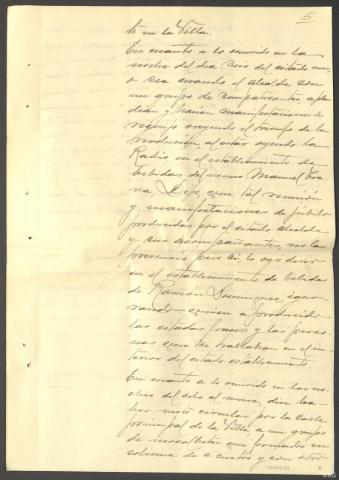 5
té en la Villa.
En cuanto a lo ocurrido en la
noche del día seis del citado mes,
o sea cuando el alcalde con
un grupo de simpatizantes, aplau
dían y hacían manifestaciones de
regocijo creyendo el triunfo de la
revolución, al estar oyendo la
Radio en el establecimiento de
bebidas del vecino Manuel
que tal reunión
y manifestaciones de júbilo
producidas por el citado alcalde
y sus acompañantes, no las
presenció pero sí, lo oyó decir
en el establecimiento de bebidas
de Ramón Dominguez, igno
rando quienes a producido
las citadas frases y las perso
nas que se hallaban en el in
terior del citado establecimiento.
En cuanto a lo ocurrido en las no
ches del ocho al nueve, dice ha
ber visto circular por la calle
principal de la Villa, a un grupo
de que formados en
columna de a cuatro y con